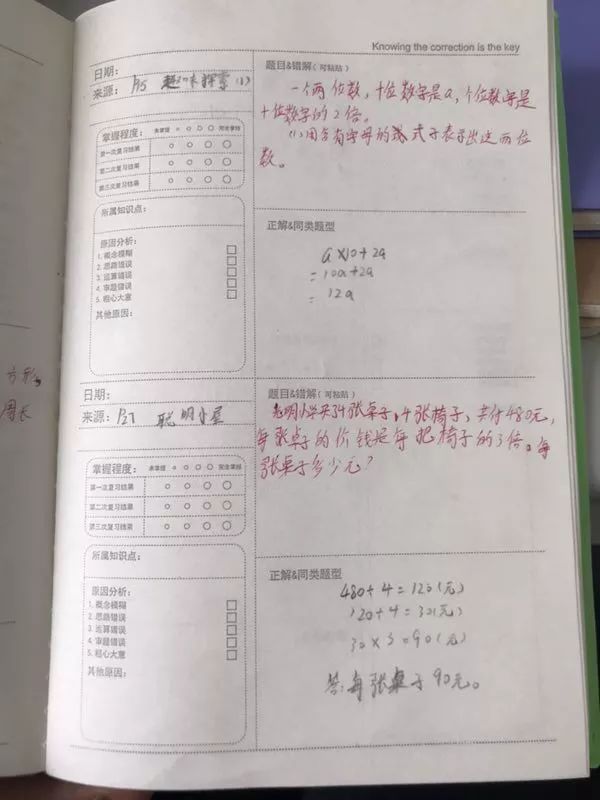 Knowing the correction is the key
日期：
来源： P15 趣味探索 (1)
题目&错解（可粘贴）
一个两位数，十位数字是a，个位数字是
十位数字的2倍。
(1)用含有字母的式子表示出这两位
数。
掌握程度： 未掌握 完全掌握
第一次复习结果
第二次复习结果
第三次复习结果
所属知识点：
原因分析：
1. 概念模糊
2. 思路错误
3. 运算错误
4. 审题错误
5. 粗心大意
其他原因：
正解&同类题型
a×10+2a
=10a+2a
=12a
方形，
周长
日期：
来源： P27 聪明小屋
题目&错解（可粘贴）
光明小学买4张桌子，4张椅子，共付480元，
每张桌子的价钱是每把椅子的3倍。每
张桌子多少元？
掌握程度： 未掌握 完全掌握
第一次复习结果
第二次复习结果
第三次复习结果
所属知识点：
原因分析：
1. 概念模糊
2. 思路错误
3. 运算错误
4. 审题错误
5. 粗心大意
其他原因：
正解&同类题型
480÷4=120(元)
120÷4=30(元)
30×3=90(元)
答：每张桌子90元。